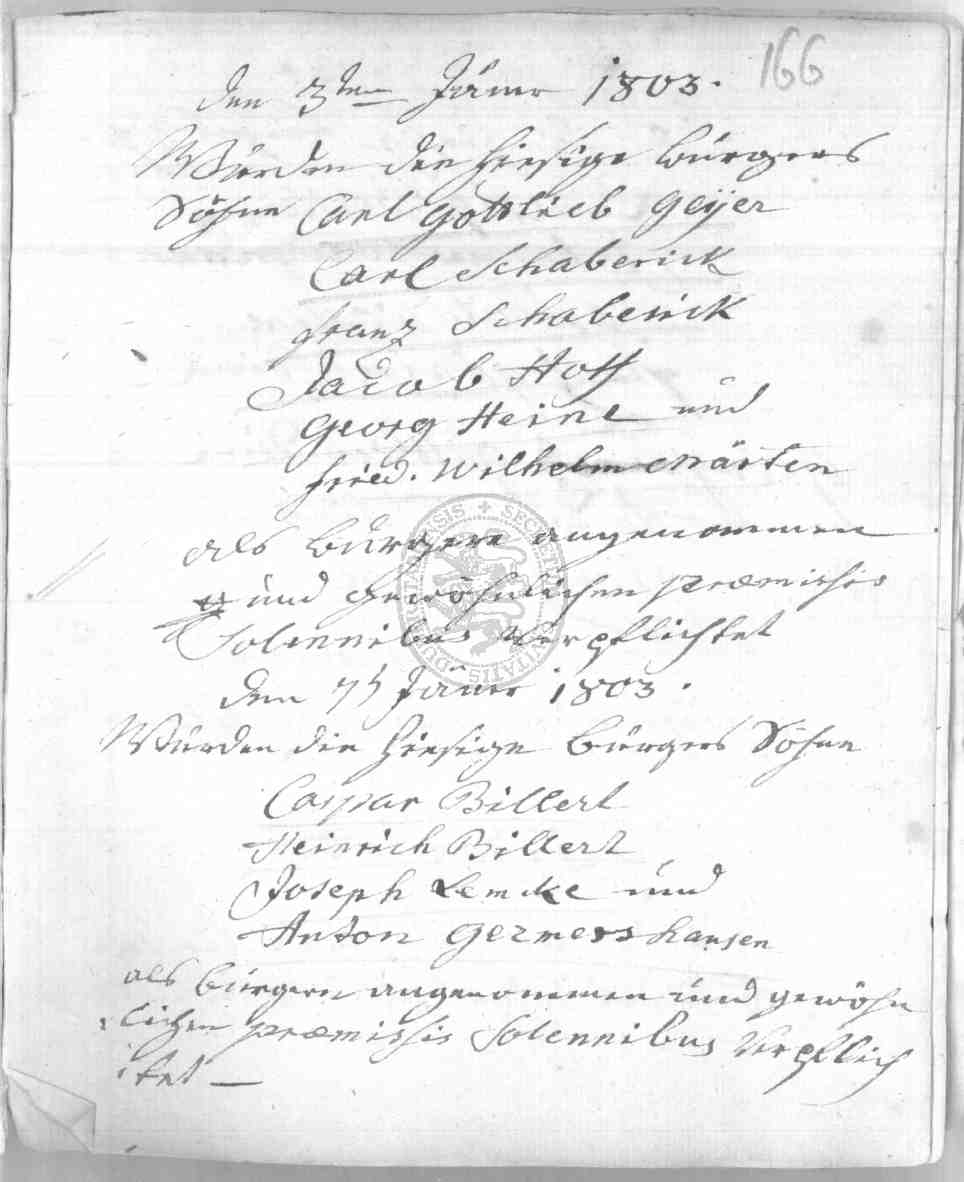 166
den 3ten Jäner 1803.
Wurden die hiesige bürgers
Söhne Carl Gottlieb Geijer
Carl Schaberick
Franz Schaberick
Jacob
Georg Heine und
Fried. Wilhelm Märten
als bürgere angenommen
und gewöhnlichen præmissis
Solennibus Verpflichtet
den 7t Jäner 1803.
Wurden die hiesige bürgers Söhne
Caspar Billert
Heinrich Billert
Joseph Lemcke und
Anton Germershausen
als bürgern angenommen und gewöhn
lichen præmissis Solennibus Verpflich
tet —